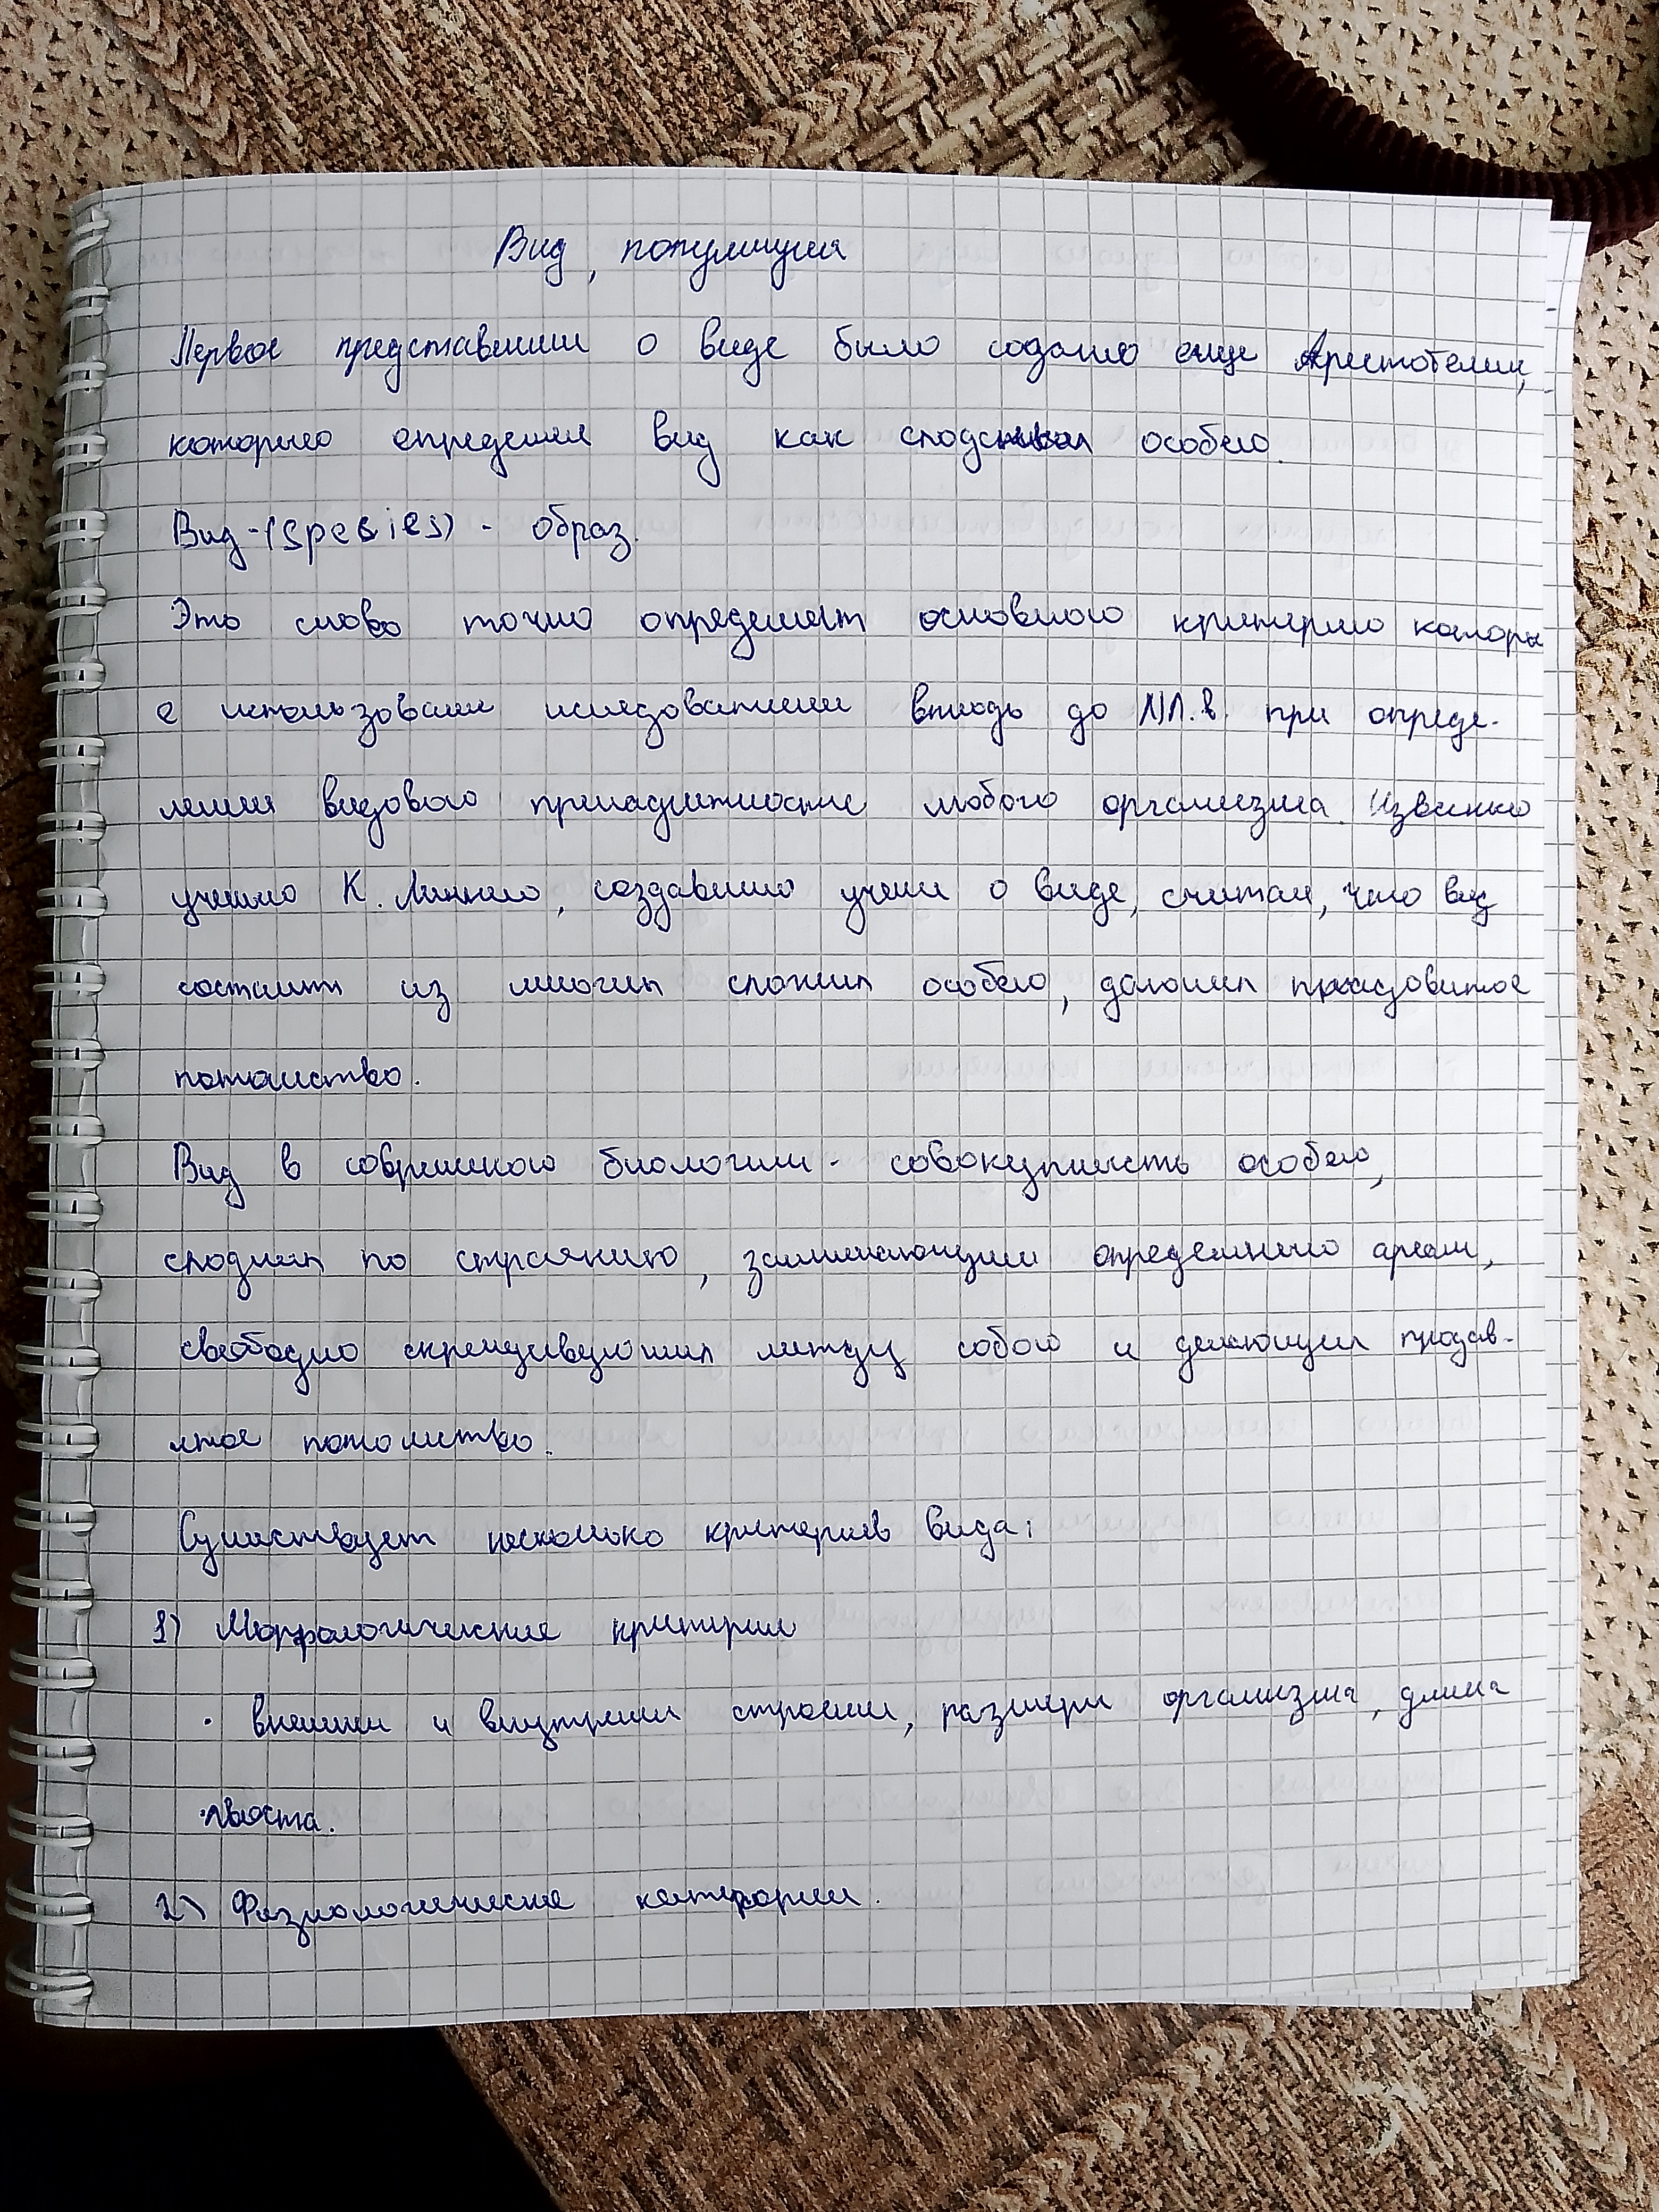 Вид, популяция
Первое представлении о виде было создано еще Аристотелим,
которыю определил вид как сходсных особею.
Вид-(spesies) - образ.
Это слово точно определяет основною критерию которы
е использовали иследователии вплодь до XIX.в. при опреде-
лении видового принадлежности любого организма. Извесною
ученыю К. Линнею, создавшию учении о виде, считал, что вид
состоит из многих схожих особею, дающих плодовитое
потомство.
Вид в совримною биологии - совокупность особею,
сходных по строянию, занимающии определнныю ареал,
свободно скрещивующих между собою и дающих плодов-
итое потомство.
Сушиствует несколько критериев вида:
1) Морфологичиские критерии
· внешнии и внутрении строении, размеры организма, длина
хвоста.
2) Физиологичиские категории.